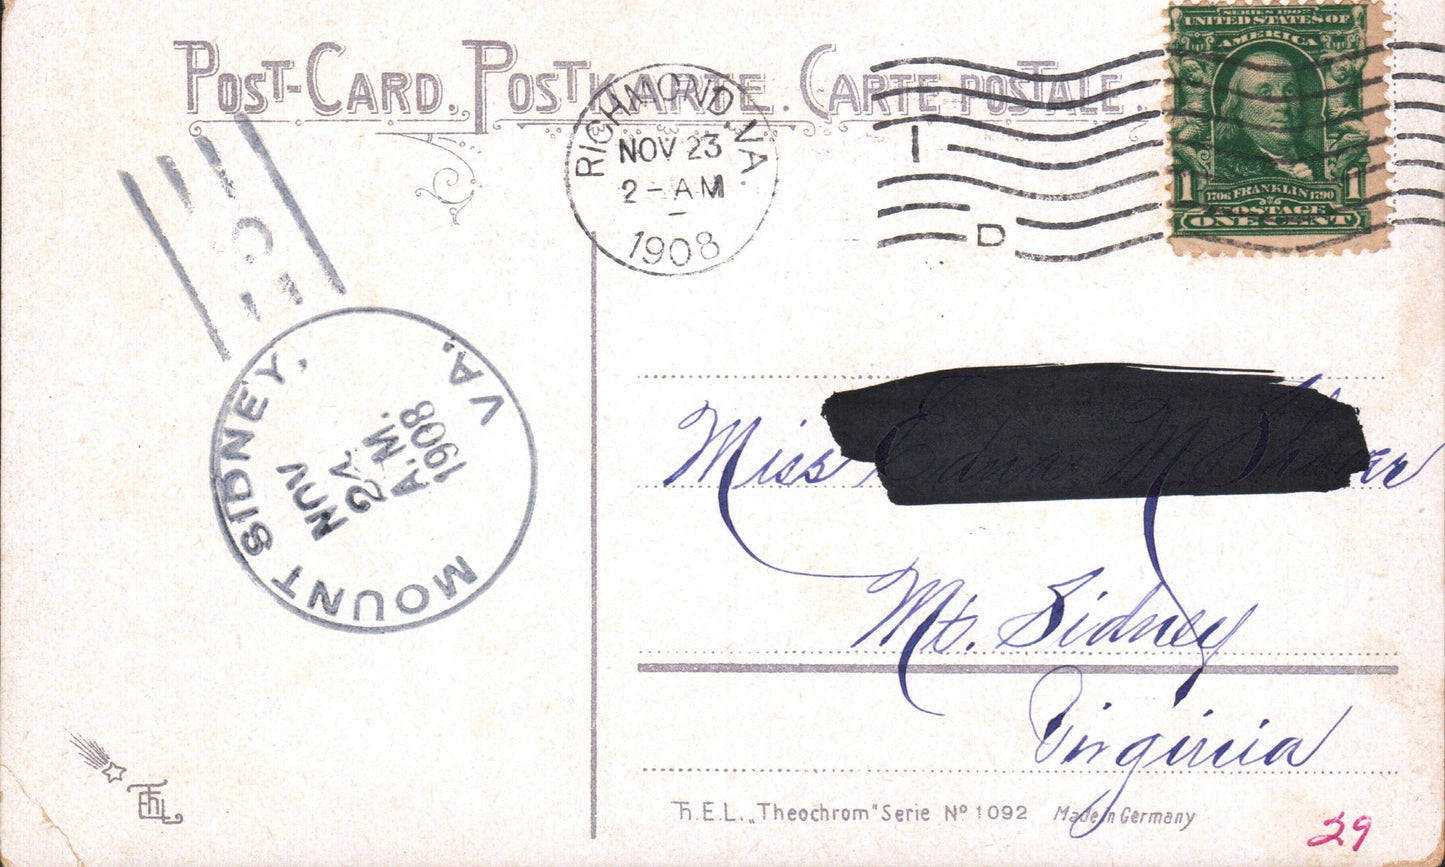 POST-CARD. POSTKARTE. CARTE POSTALE.
SERIES 1902
UNITED STATES OF
AMERICA
1 1706 FRANKLIN 1790 1
POSTAGE
ONE CENT
RICHMOND, VA.
NOV 23
2-AM
1908
I
D
MOUNT SIDNEY, VA.
NOV
24
A.M.
1908
Miss
Mt. Sidney
Virginia
Th.E.L. „Theochrom" Serie Nº 1092 Made in Germany
29